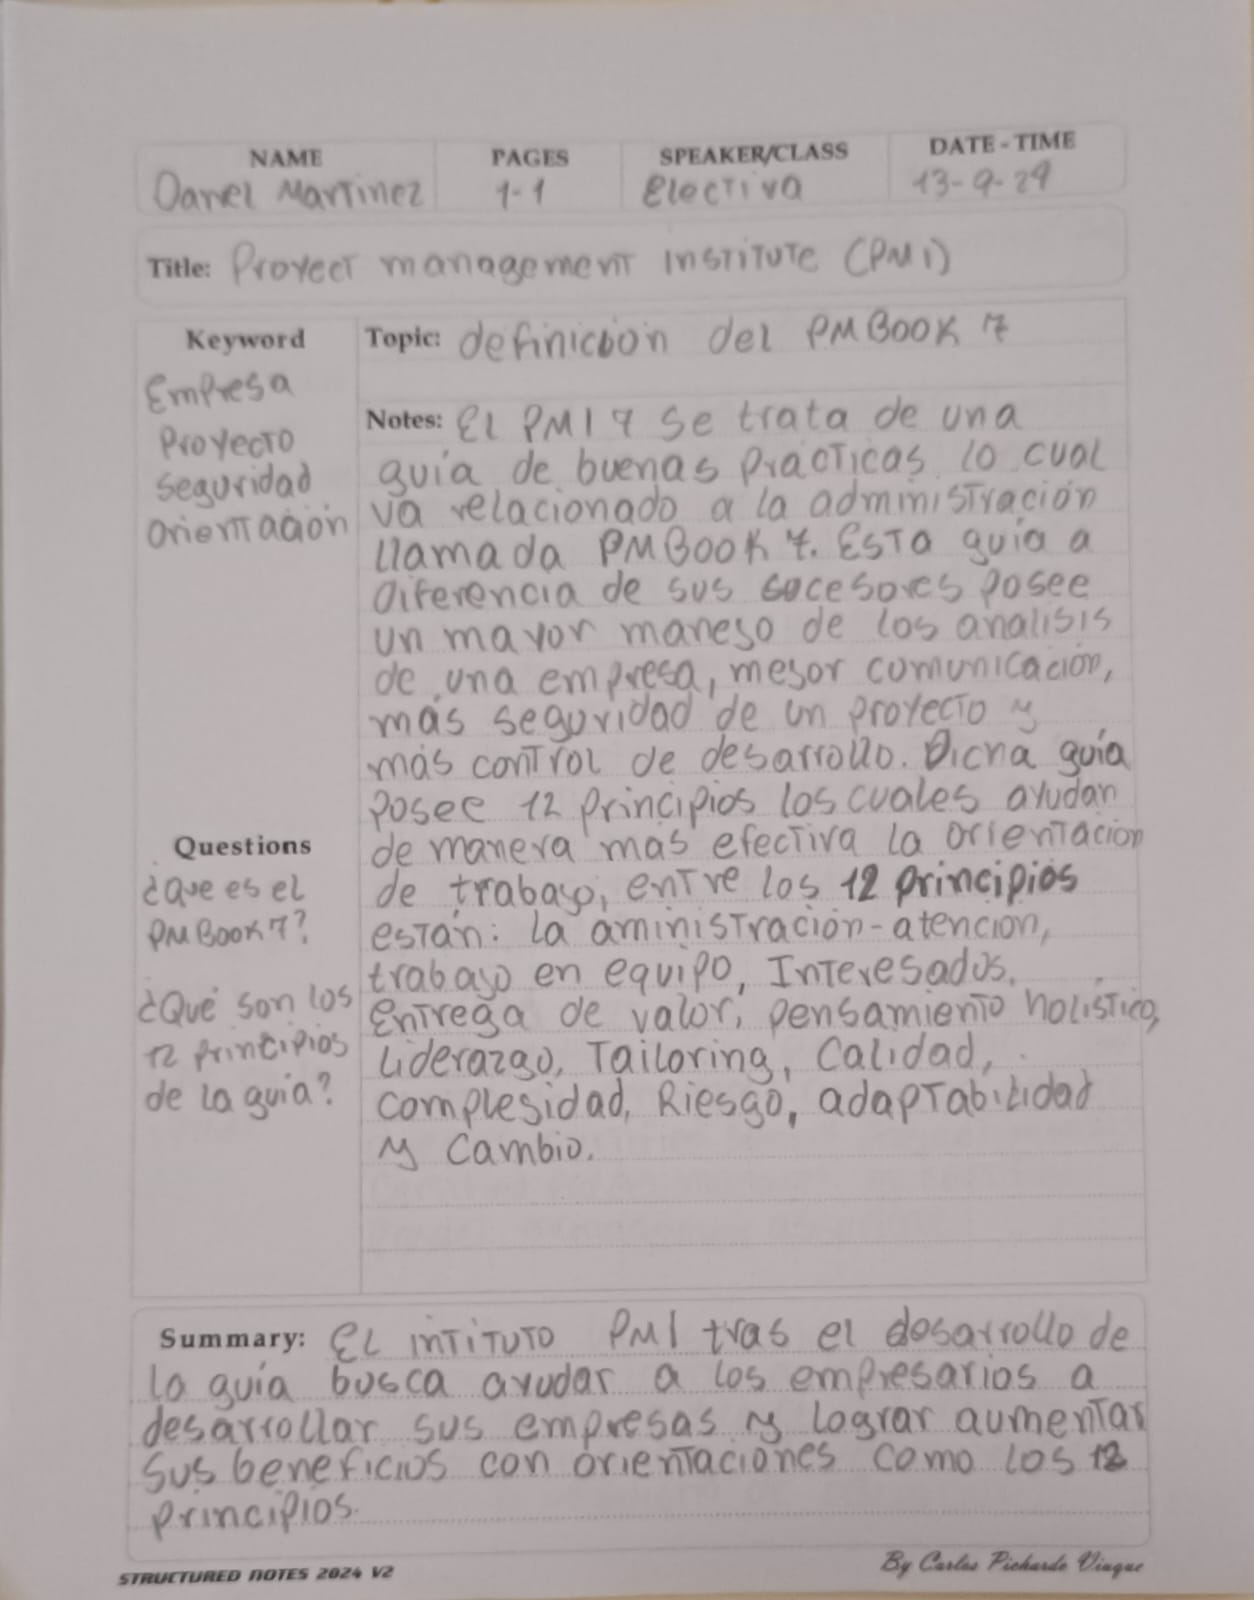 NAME PAGES SPEAKER/CLASS DATE - TIME
Daniel Martinez 1-1 Electiva 13-9-24
Title: Proyect management institute (PMI)
Keyword
Empresa
Proyecto
seguridad
orientación
Questions
¿que es el
PMBook 7?
¿Qué son los
12 principios
de la guia?
Topic: definicion del PMBOOK 7
Notes: El PMI 7 se trata de una
guía de buenas prácticas lo cual
va relacionado a la administración
llamada PMBOOK 7. Esta guía a
diferencia de sus sucesores posee
un mayor maneso de los analisis
de una empresa, mesor comunicación,
más seguridad de un proyecto y
más control de desarrollo. Dicha guía
posee 12 principios los cuales ayudan
de manera mas efectiva la orientación
de trabaso, entre los 12 principios
están: la aministración-atencion,
trabaso en equipo, Interesados,
Entrega de valor, pensamiento holístico,
Liderazgo, Tailoring, Calidad,
complesidad, Riesgo, adaptabilidad
y Cambio.
Summary: El intituto PMI tras el desarrollo de
la guía busca ayudar a los empresarios a
desarrollar sus empresas y lograr aumentar
sus beneficios con orientaciones como los 12
principios.
STRUCTURED NOTES 2024 V2
By Carlos Pichardo Viuque